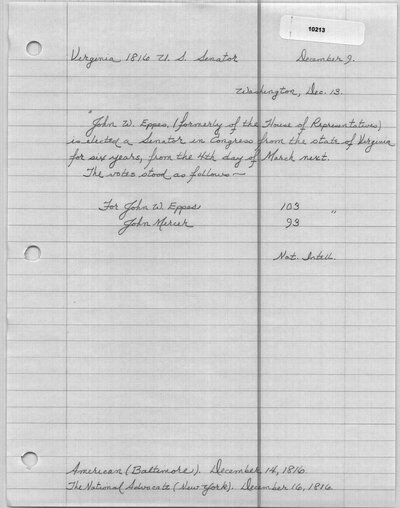 10213
Virginia 1816 U. S. Senator December 9.
Washington, Dec. 13.
"John W. Eppes, (formerly of the House of Representatives)
is elected a Senator in Congress from the state of Virginia
for six years, from the 4th day of March next.
The votes stood as follows—
For John W. Eppes 103
John Mercer 93 "
Nat. Intell.
American (Baltimore). December 14, 1816.
The National Advocate (New York). December 16, 1816.